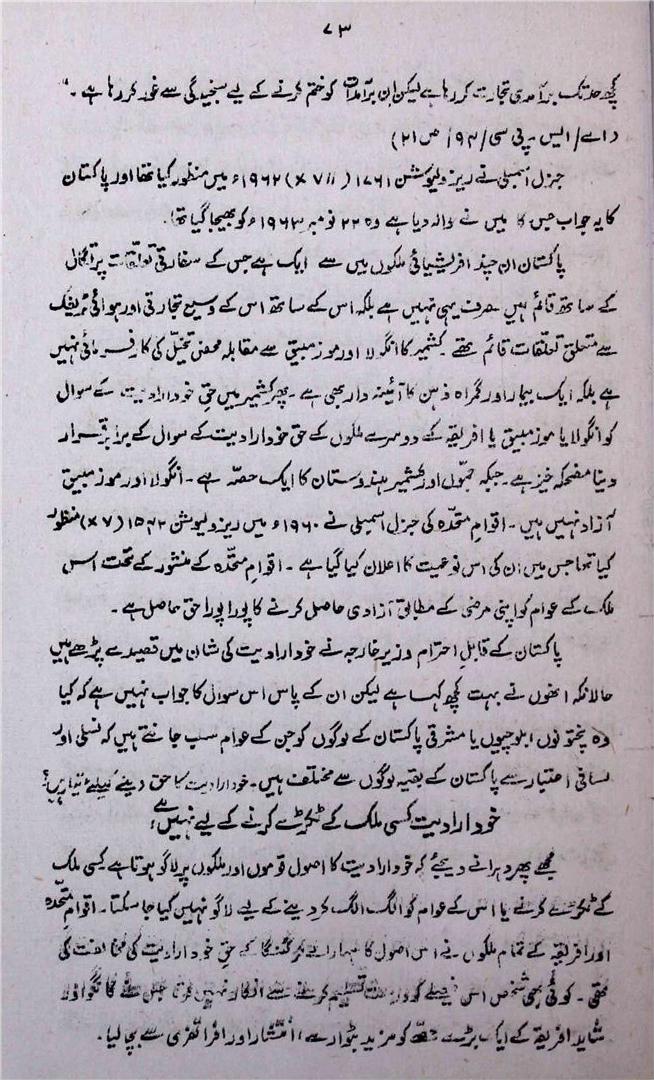 ۷۳
کچھ حد تک برآمدی تجارت کر رہا ہے لیکن ان برآمدات کو ختم کرنے کے لیے سنجیدگی سے غور کر رہا ہے ۔"
(اے/ ایس ۔ پی سی/ ۹۴/ ص ۲۱)
جنرل اسمبلی نے ریزولیوشن ۱۷۶۱ (XVII) ۱۹۶۲ء میں منظور کیا تھا اور پاکستان
کا یہ جواب جس کا میں نے حوالہ دیا ہے وہ ۲۲ نومبر ۱۹۶۳ء کو بھیجا گیا تھا۔
پاکستان ان چند افریشیائی ملکوں میں سے ایک ہے جس کے سفارتی تعلقات پرتگال
کے ساتھ قائم ہیں صرف یہی نہیں ہے بلکہ اس کے ساتھ اس کے وسیع تجارتی اور ہوائی ٹریفک
سے متعلق تعلقات قائم تھے ۔ کشمیر کا انگولا اور موزمبیق سے مقابلہ محض تخیل کی کارفرمائی نہیں
ہے بلکہ ایک بیمار اور گمراہ ذہن کا آئینہ دار بھی ہے ۔ پھر کشمیر میں حق خودارادیت کے سوال
کو انگولا یا موزمبیق یا افریقہ کے دوسرے ملکوں کے حق خودارادیت کے سوال کے برابر قرار
دینا مضحکہ خیز ہے ۔ جبکہ جموں اور کشمیر ہندوستان کا ایک حصہ ہے ۔ انگولا اور موزمبیق
آزاد نہیں ہیں ۔ اقوام متحدہ کی جنرل اسمبلی نے ۱۹۶۰ء میں ریزولیوشن ۱۵۴۲ (XV) منظور
کیا تھا جس میں ان کی اس نوعیت کا اعلان کیا گیا ہے ۔ اقوام متحدہ کے منشور کے تحت اس
ملک کے عوام کو اپنی مرضی کے مطابق آزادی حاصل کرنے کا پورا پورا حق حاصل ہے ۔
پاکستان کے قابل احترام وزیر خارجہ نے خودارادیت کی شان میں قصیدے پڑھے ہیں
حالانکہ انھوں نے بہت کچھ کہا ہے لیکن ان کے پاس اس سوال کا جواب نہیں ہے کہ کیا
وہ پختونوں ، بلوچیوں یا مشرقی پاکستان کے لوگوں کو جن کے عوام سب جانتے ہیں کہ نسلی اور
لسانی اعتبار سے پاکستان کے بقیہ لوگوں سے مختلف ہیں ۔ خودارادیت کا حق دینے کیلئے تیار ہیں؟
خودارادیت کسی ملک کے ٹکڑے کرنے کے لیے نہیں ہے
مجھے پھر دہرانے دیجئے کہ خودارادیت کا اصول قوموں اور ملکوں پر لاگو ہوتا ہے کسی ملک
کے ٹکڑے کرنے یا اس کے عوام کو الگ الگ کر دینے کے لیے لاگو نہیں کیا جا سکتا ۔ اقوام متحدہ
اور افریقہ کے تمام ملکوں نے اس اصول کا سہارا لے کر کٹنگا کے حق خودارادیت کی مخالفت کی
تھی ۔ کوئی بھی شخص اس فیصلے کو درست تسلیم کرنے سے انکار نہیں کرتا جس نے کانگو اور
شاید افریقہ کے ایک بڑے حصے کو مزید بٹوارے ، انتشار اور افراتفری سے بچا لیا ۔